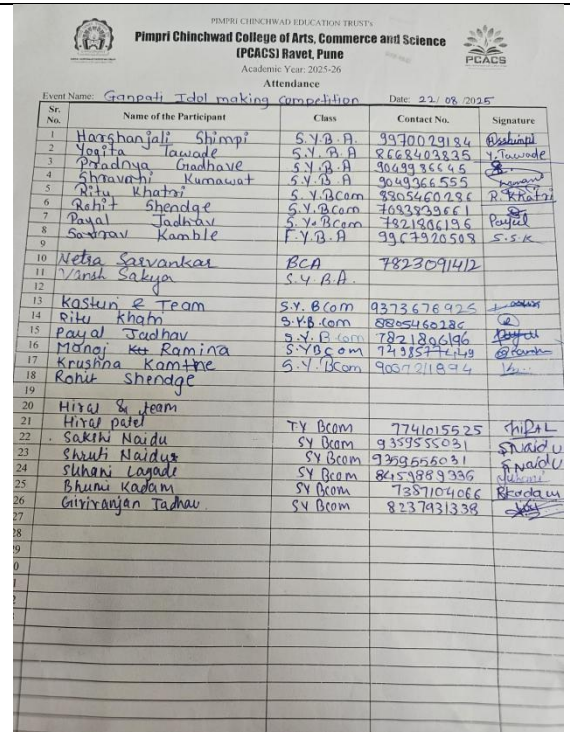 PIMPRI CHINCHWAD EDUCATION TRUST's
Pimpri Chinchwad College of Arts, Commerce and Science
(PCACS) Ravet, Pune
PCACS
Academic Year: 2025-26
Attendance
Event Name: Ganpati Idol making competition Date: 22/08/2025
Sr. No. Name of the Participant Class Contact No. Signature
1 Harshanjali Shimpi S.Y.B.A. 9970029184
2 Yogita Tawade S.Y.B.A 8668403835 Y.Tawade
3 Pradnya Gadhave S.Y.B.A 9049936645
4 Shravani Kumawat S.Y.B.A 9049366555
5 Ritu Khatri S.Y.Bcom 8805460286 R.Khatri
6 Rohit Shendge S.Y.Bcom 7083839661
7 Payal Jadhav S.Y.Bcom 7821806196 Payal
8 Sourav Kamble F.Y.B.A 9967920508 S.S.K
9
10 Netra Sarvankar BCA 7823091412
11 Vansh Sakya S.Y.B.A.
12
13 Kasturi & Team S.Y. BCom 9373676925
14 Ritu Khatri S.Y.B.com 8805460286
15 Payal Jadhav S.Y.B com 7821806196 Payal
16 Manoj Ramina S.YBcom
17 Krushna Kamthe S.Y.BCom
18 Rohit Shendge
19
20 Hiral & team
21 Hiral patel T.Y Bcom 7741015525 HiRAL
22 Sakshi Naidu SY Bcom 9359555031 SNaidu
23 Shruti Naidu SY Bcom 9359555031 SNaidu
24 Suhani Lagade SY Bcom 8459889336 Suhani
25 Bhumi Kadam SY Bcom 7387104066 Bkadam
26 Giriranjan Jadhav SY Bcom 8237931339
27
28